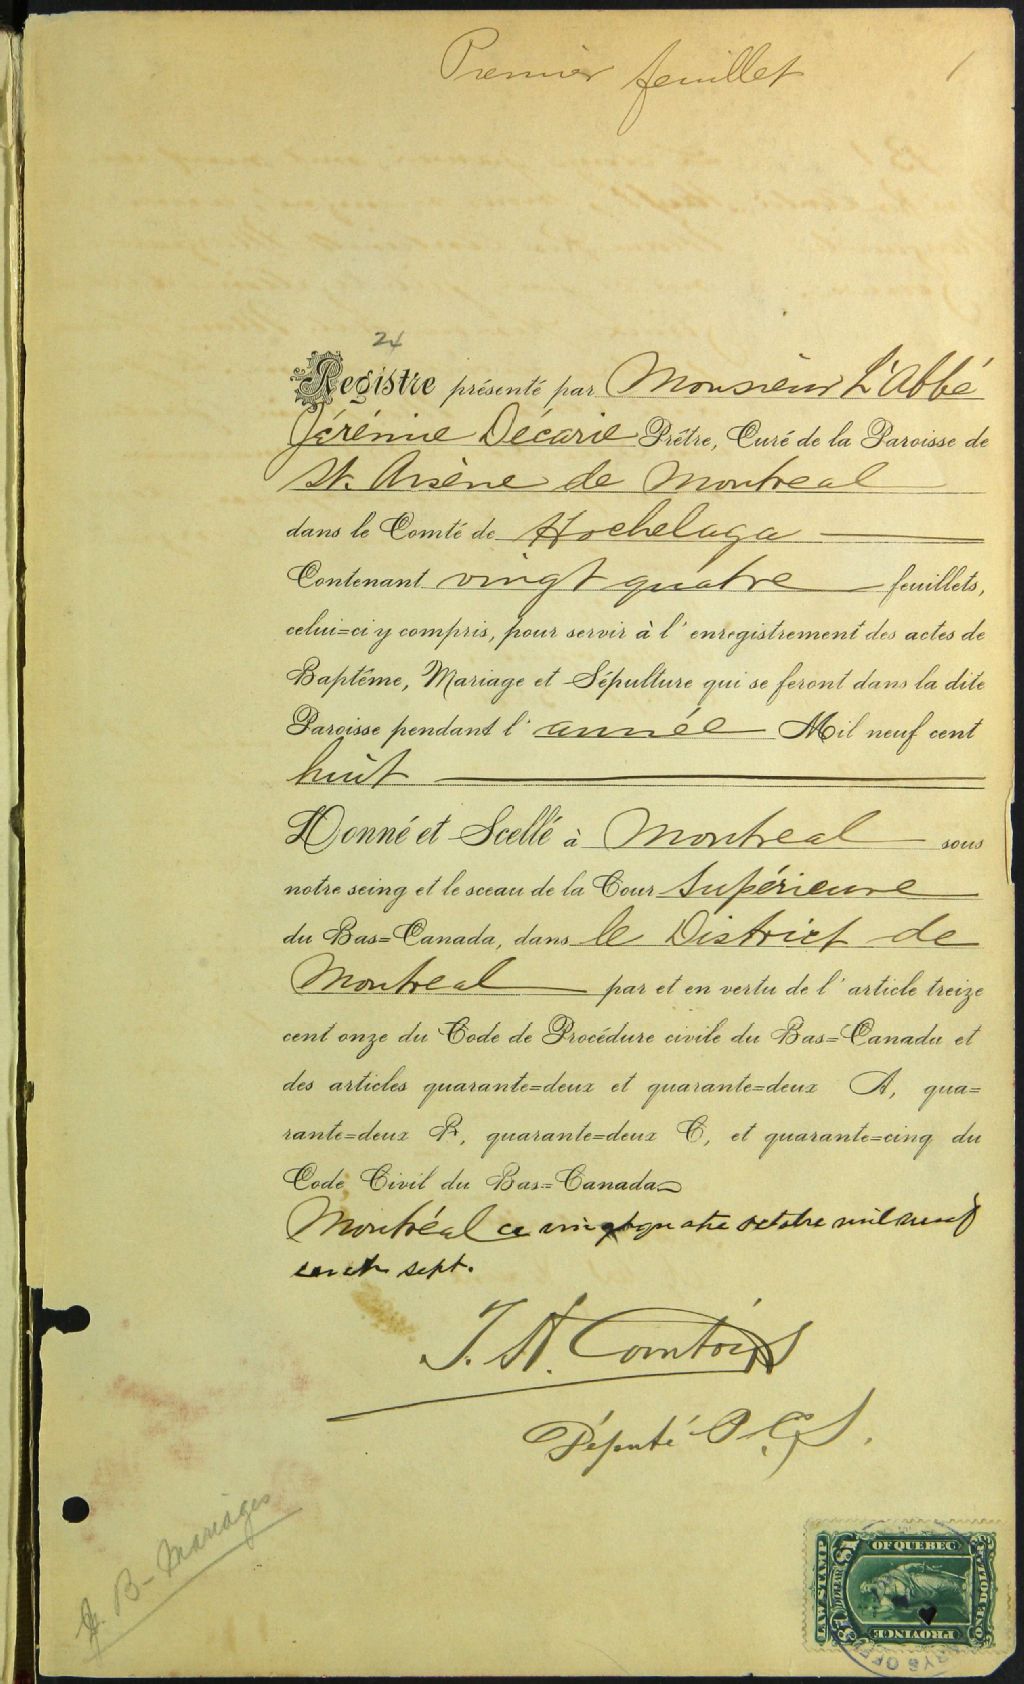 Premier feuillet
1
24
Registre présenté par Monsieur L'Abbé
Jérémie Décarie Prêtre, Curé de la Paroisse de
St. Arsène de Montreal
dans le Comté de Hochelaga
Contenant vingt quatre feuillets,
celui=ci y compris, pour servir à l'enregistrement des actes de
Baptême, Mariage et Sépulture qui se feront dans la dite
Paroisse pendant l'année Mil neuf cent
huit
Donné et Scellé à Montreal sous
notre seing et le sceau de la Cour Supérieure
du Bas=Canada, dans le District de
Montreal par et en vertu de l'article treize
cent onze du Code de Procédure civile du Bas=Canada et
des articles quarante=deux et quarante=deux A, qua=
rante=deux B, quarante=deux C, et quarante=cinq du
Code Civil du Bas=Canada
Montréal ce vingtquatre octobre mil neuf
cent sept.
J. H. Comtois
Député P.C.S.
B- Mariages
LAW STAMP
$1 DOLLAR $1
OF QUEBEC
PROVINCE
ONE DOLLAR